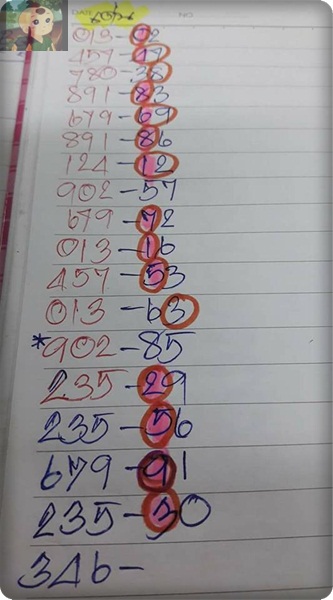 DATE NO.
013-02
457-47
780-38
891-83
679-69
891-86
124-12
902-57
679-72
013-16
457-53
013-63
*902-85
235-29
235-56
679-91
235-30
346-